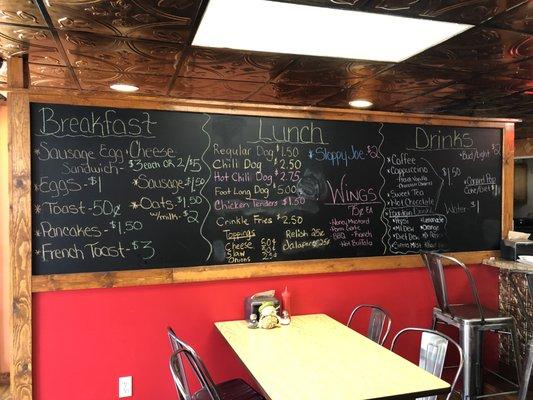 Breakfast
* Sausage Egg Cheese
Sandwich - $3 each OR 2/$5
* Eggs - $1
* Sausage $1.50
* Toast - 50¢
* Oats $1.50
w/milk - $2
* Pancakes - $1.50
* French Toast - $3
Lunch
Regular Dog $1.50
Chili Dog $2.50
Hot Chili Dog $2.75
Foot Long Dog $5.00
Chicken Tenders $1.50
Crinkle Fries $2.50
Toppings
Cheese 50¢
Slaw 50¢
Onions 25¢
Relish 25¢
Jalapeño $25¢
* Sloppy Joe $2
WINGS
75¢ EA
Honey Mustard
Parm Garlic
BBQ - Ranch
Hot Buffalo
Drinks
* Coffee
* Cappuccino
French Vanilla
$1.50
* Sweet Tea
* Hot Chocolate
* Fountain Drinks
* Pepsi
* Mt. Dew
* Diet Dew
* Lemonade
* Orange
* Dr. Pep
* Bud/Light $2
* Canned Pop
$1
* Water $1